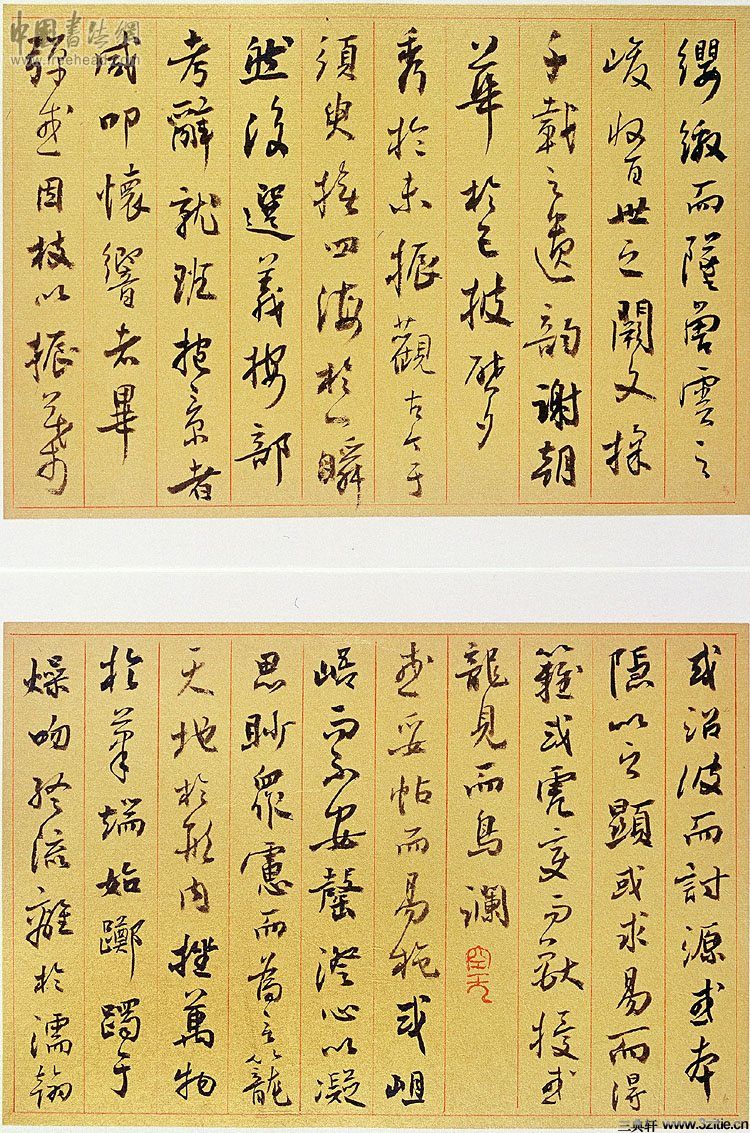 中国书法网
www.freehead.com
缨缴而墜曾雲之
峻收百世之闕文採
千載之遺韵谢朝
華於已披啓夕
秀於未振觀古今于
須臾撫四海於一瞬
然後選義按部
考辭就班抱景者
咸叩懷響者畢
彈或因枝以振葉
或沿波而討源或本
隱以之顯或求易而得
難或虎變而獸擾或
龍見而鳥瀾
或妥帖而易施或岨
峿而不安罄澄心以凝
思眇衆慮而爲言籠
天地於形內挫萬物
於筆端始躑躅于
燥吻終流離於濡翰
三典轩 www.3zitie.cn